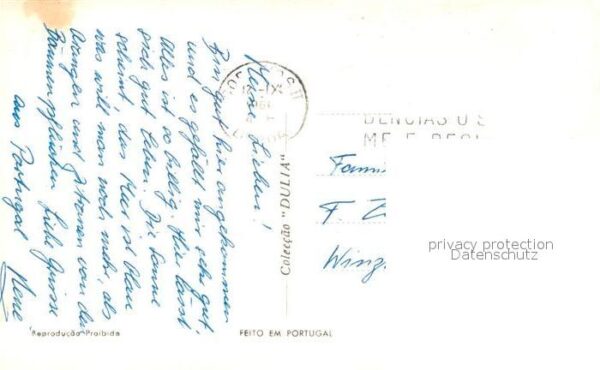 Meine Lieben!
Bin gut hier angekommen
und es gefällt mir sehr gut
Alles ist so billig. Hier lässt
sich gut leben. Die Sonne
scheint, das Meer ist blau
was will man noch mehr, als
Orangen und Zitronen von den
Bäumen pflücken. Liebe Grüsse
aus Portugal
Colecção "DULIA"
Reprodução Proibida
FEITO EM PORTUGAL
12-IX
DENCIAS
Fami
F. Z
Winz
privacy protection
Datenschutz